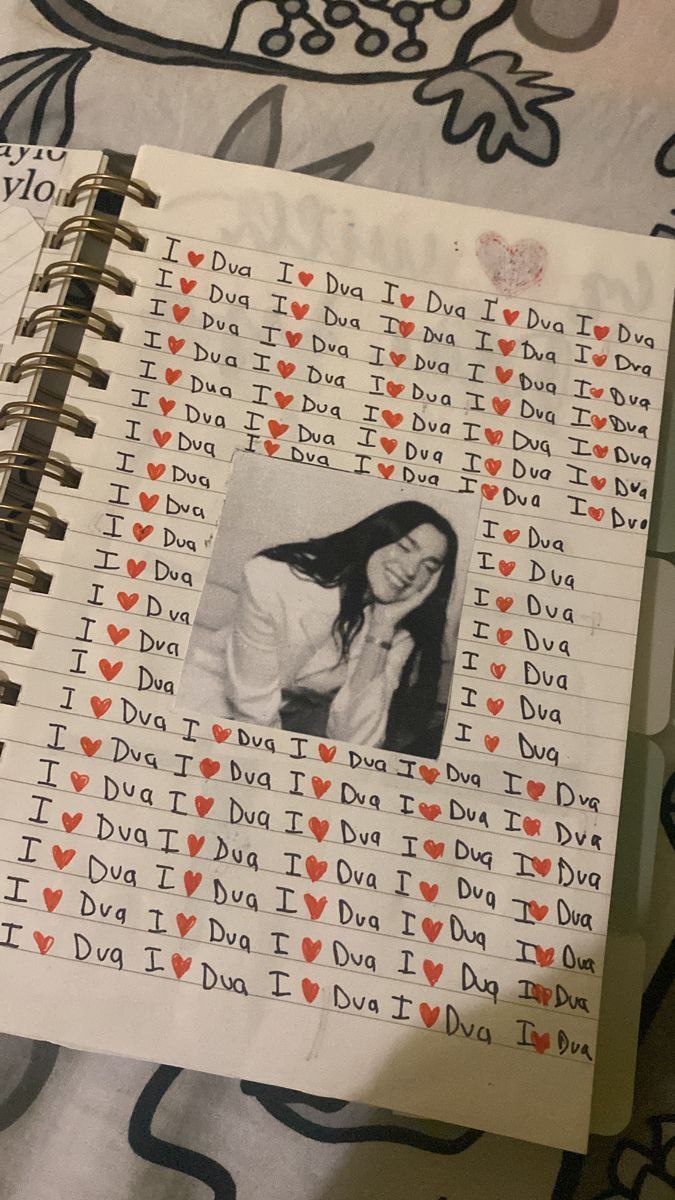 aylo
ylo
I ♥ Dua I ♥ Dua I ♥ Dua I ♥ Dua I ♥ Dua
I ♥ Dua I ♥ Dua I ♥ Dua I ♥ Dua I ♥ Dua
I ♥ Dua I ♥ Dua I ♥ Dua I ♥ Dua I ♥ Dua
I ♥ Dua I ♥ Dua I ♥ Dua I ♥ Dua I ♥ Dua
I ♥ Dua I ♥ Dua I ♥ Dua I ♥ Dua I ♥ Dua
I ♥ Dua I ♥ Dua I ♥ Dua I ♥ Dua I ♥ Dua
I ♥ Dua I ♥ Dua I ♥ Dua I ♥ Dua I ♥ Dua
I ♥ Dua I ♥ Dua
I ♥ Dua I ♥ Dua
I ♥ Dua I ♥ Dua
I ♥ Dua I ♥ Dua
I ♥ Dua I ♥ Dua
I ♥ Dua I ♥ Dua
I ♥ Dua I ♥ Dua
I ♥ Dua I ♥ Dua I ♥ Dua I ♥ Dua I ♥ Dua
I ♥ Dua I ♥ Dua I ♥ Dua I ♥ Dua I ♥ Dua
I ♥ Dua I ♥ Dua I ♥ Dua I ♥ Dua I ♥ Dua
I ♥ Dua I ♥ Dua I ♥ Dua I ♥ Dua I ♥ Dua
I ♥ Dua I ♥ Dua I ♥ Dua I ♥ Dua I ♥ Dua
I ♥ Dua I ♥ Dua I ♥ Dua I ♥ Dua I ♥ Dua
I ♥ Dua I ♥ Dua I ♥ Dua I ♥ Dua I ♥ Dua